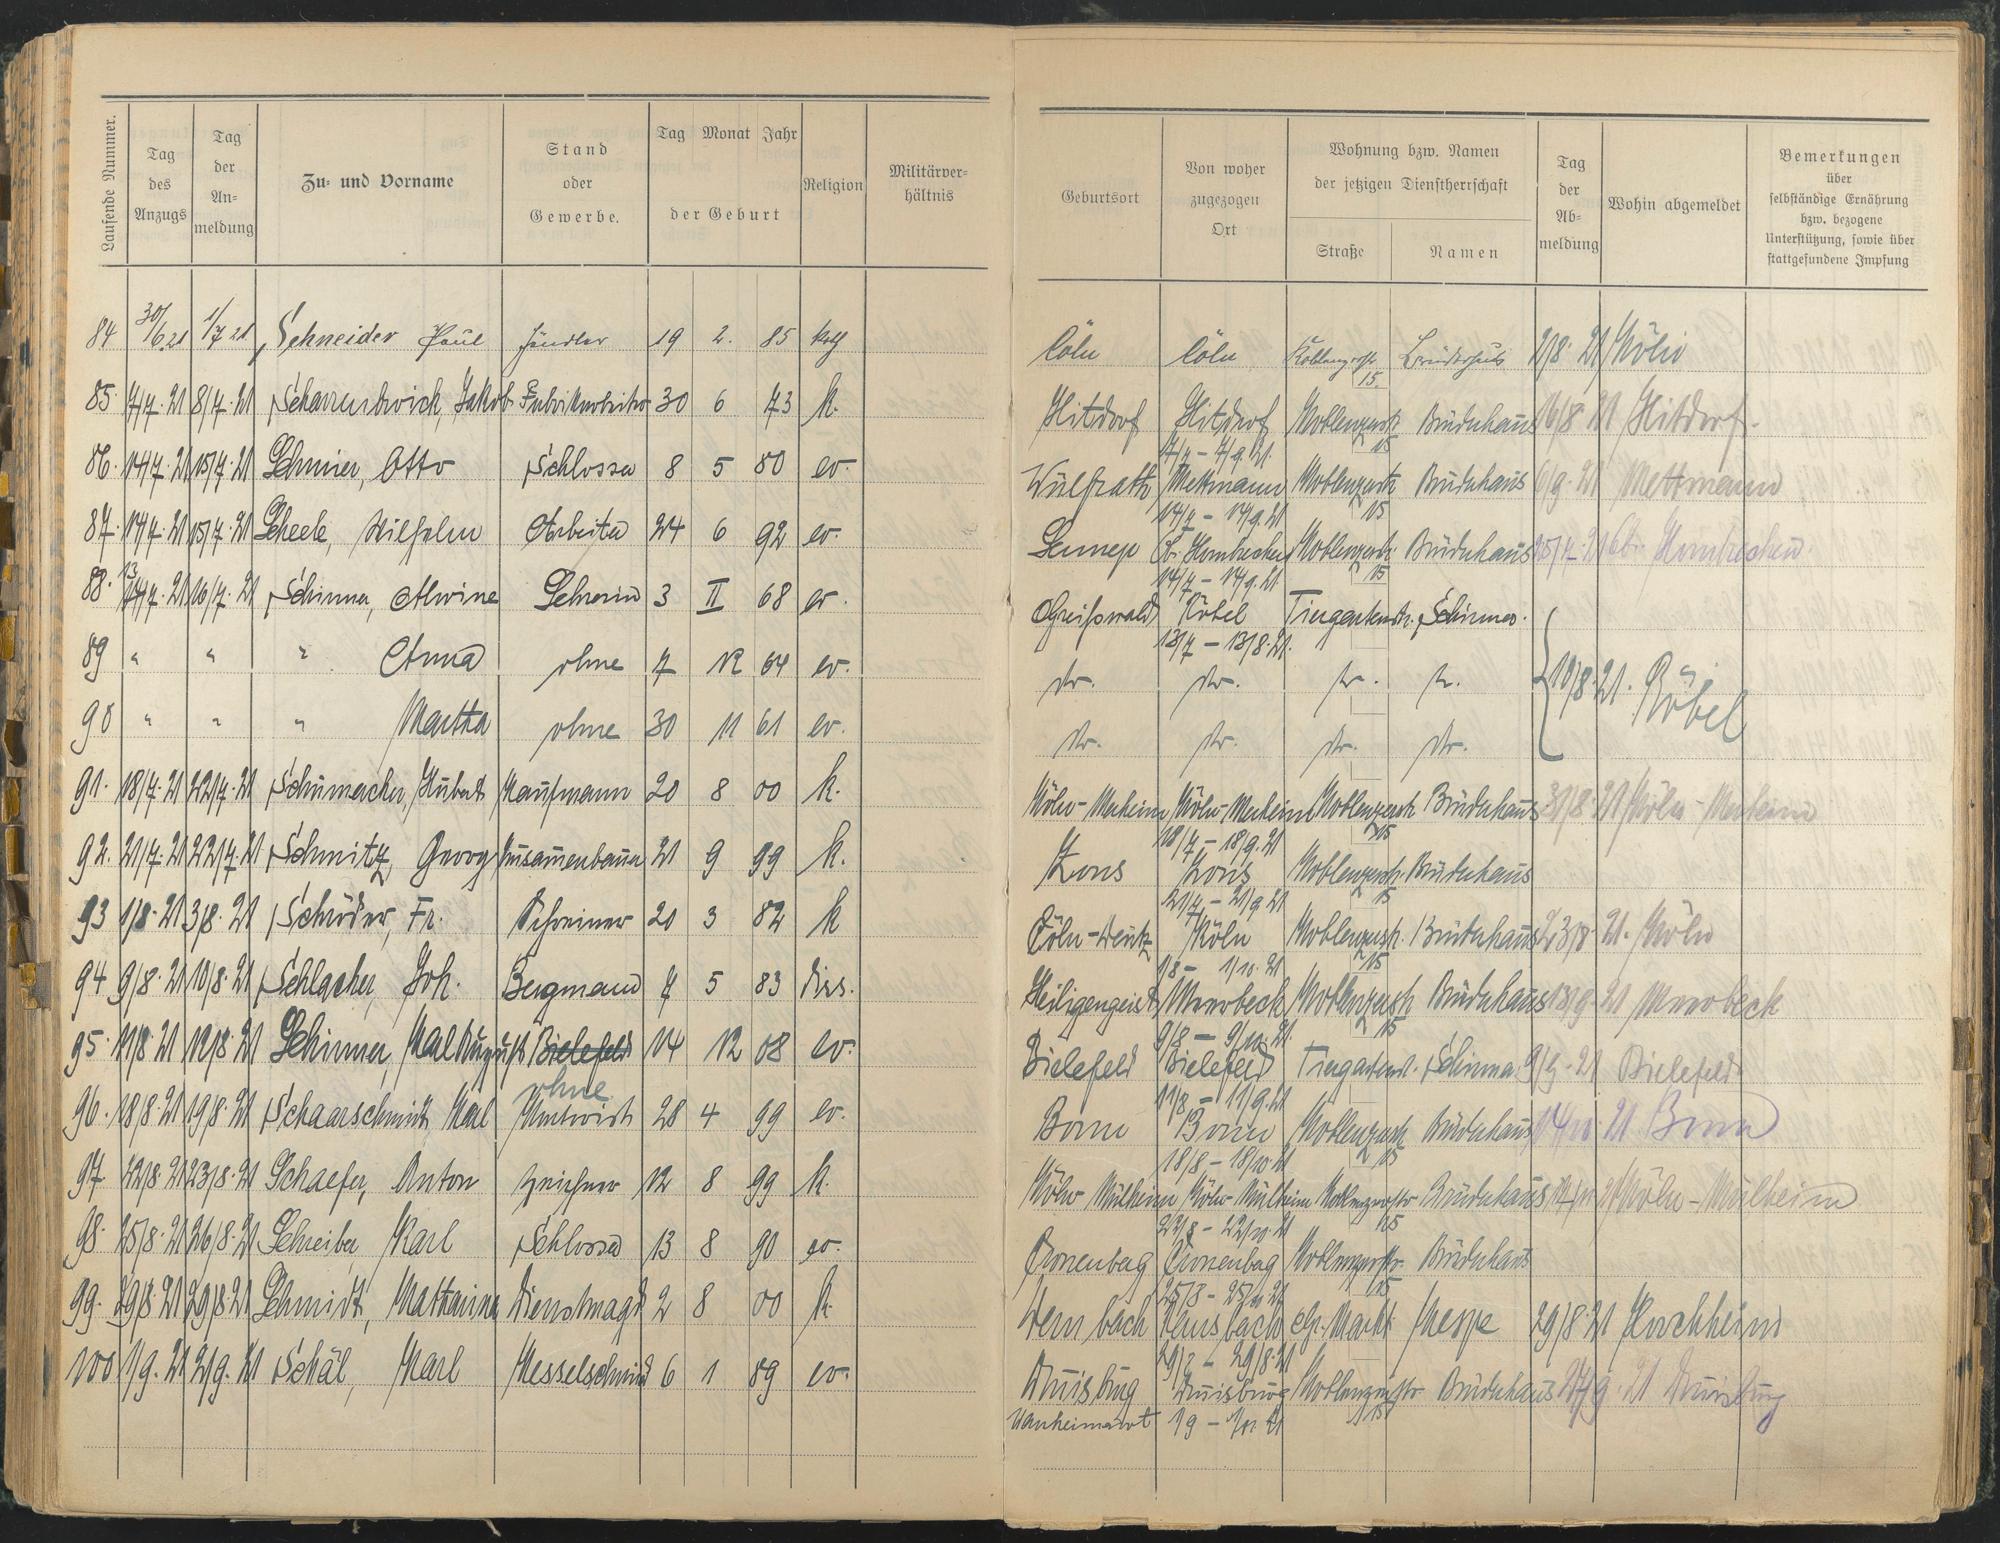 Laufende Nummer.
Tag des Anzugs
Tag der An-meldung
Zu- und Vorname
Stand oder Gewerbe.
Tag Monat Jahr
der Geburt
Religion
Militärver-hältnis
Geburtsort
Von woher zugezogen Ort
Wohnung bzw. Namen
der jetzigen Dienstherrschaft
Straße Namen
Tag der Ab-meldung
Wohin abgemeldet
Bemerkungen
über
selbständige Ernährung
bzw. bezogene
Unterstützung, sowie über
stattgefundene Impfung
84 30/6 21 1/7 21 Schneider Paul Händler 19 2. 85 kath Cöln Cöln Koblenzerstr. 15. Bruderhaus 2/8. 21 Köln
85. 7/7. 21 8/7. 21 Jakob Fabrikarbeiter 30 6 73 k. Hitdorf Hitdorf Koblenzerstr. 15 Brüderhaus 16/8 21 Hitdorf.
7/7 – 7/9. 21.
86. 14/7. 21 15/7. 21 Otto Schlosser 8 5 80 ev. Wülfrath Mettmann Koblenzerstr. 15 Brüderhaus 6/9. 21 Mettmann
14/7 – 14/9. 21
87. 14/7. 21 15/7. 21 Scheele, Wilhelm Arbeiter 24 6 92 ev. Lennep Koblenzerstr. 15 Brüderhaus
14/7 – 14/9. 21.
88. 13/7. 21 16/7. 21 Schirmer, Alwine Lehrerin 3 II 68 ev. Greifswald Röbel Tiergartenstr. Schirmer.
13/7 – 13/8. 21.
89 " " " Anna ohne 7 12 64 ev. do. do. do. do. 10/8. 21. Röbel
90 " " " Martha ohne 30 11 61 ev. do. do. do. do.
91. 18/7. 21 22/7. 21 Schumacher, Hubert Kaufmann 20 8 00 k. Köln-Merheim Köln-Merheim Koblenzerstr. 15 Brüderhaus 31/8. 21 Köln-Merheim
18/7 – 18/9. 21
92. 21/7. 21 22/7. 21 Schmitz, Georg Zusamenbauer 21 9 99 k. Zons Zons Koblenzerstr. 15 Brüderhaus
21/7 – 21/9 21
93 1/8. 21 3/8. 21 Schröder, Fr. Schreiner 20 3 82 k Cöln-Deutz Köln Koblenzerstr. 15 Brüderhaus 23/8. 21. Köln
1/8 – 1/10. 21
94 9/8. 21 10/8. 21 Joh. Bergmann 7 5 83 diss. Heiligengeist Meerbeck Koblenzerstr. 15 Brüderhaus 13/9. 21 Meerbeck
9/8 – 9/10. 21.
95. 11/8. 21 12/8. 21 Schirmer, Karl August Bielefeld ohne 14 12 08 ev. Bielefeld Bielefeld Tiergartenst. Schirmer 9/9. 21 Bielefeld
11/8 – 11/9. 21
96. 18/8. 21 19/8. 21 Schaarschmidt Karl 28 4 99 ev. Bonn Bonn Koblenzerstr. 15 Brüderhaus 14/10. 21 Bonn
18/8 – 18/10. 21
97 22/8. 21 23/8. 21 Schaefer, Anton Zeichner 12 8 99 k. Köln Mülheim Köln Mülheim Koblenzerstr 15 Brüderhaus Köln-Mülheim
22/8 – 22/10. 21
98. 25/8. 21 26/8. 21 Schreiber Karl Schlosser 13 8 90 ev. Cronenberg Cronenberg Koblenzerstr. 15 Brüderhaus
99. 29/8. 21 29/8. 21 Schmidt, Katharina Dienstmagd 2 8 00 k. Dernbach Markt 29/8. 21 Horchheim
100 1/9. 21 2/9. 21 Schäl, Karl Kesselschmied 6 1 89 ev. Duisburg Wanheimerort Duisburg Koblenzerstr 15 Brüderhaus 27/9. 21 Duisburg